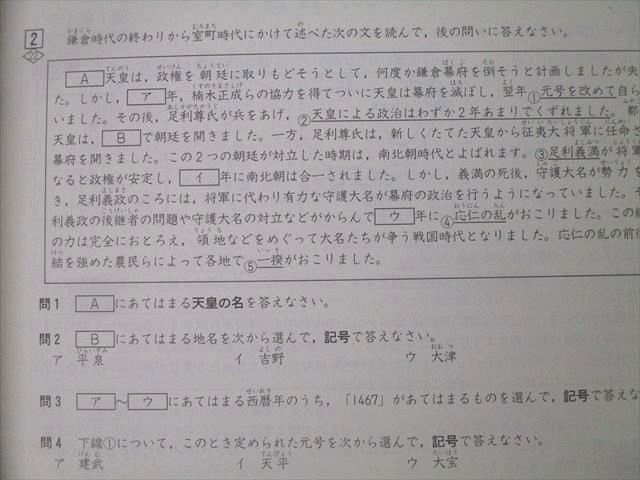 2 鎌倉時代の終わりから室町時代にかけて述べた次の文を読んで，後の問いに答えなさい。
22
A 天皇は，政権を朝廷に取りもどそうとして，何度か鎌倉幕府を倒そうと計画しましたが失
た。しかし，ア年，楠木正成らの協力を得てついに天皇は幕府を滅ぼし，翌年①元号を改めて自ら
いました。その後，足利尊氏が兵をあげ，②天皇による政治はわずか2年あまりでくずれました。都
天皇は，Bで朝廷を開きました。一方，足利尊氏は，新しくたてた天皇から征夷大将軍に任命さ
幕府を開きました。この2つの朝廷が対立した時期は，南北朝時代とよばれます。③足利義満が将軍
なると政権が安定し，イ年に南北朝は合一されました。しかし，義満の死後，守護大名が勢力を
き，足利義政のころには，将軍に代わり有力な守護大名が幕府の政治を行うようになっていました。そ
利義政の後継者の問題や守護大名の対立などがからんでウ年に④応仁の乱がおこりました。この
の力は完全におとろえ，領地などをめぐって大名たちが争う戦国時代となりました。応仁の乱の前後
結を強めた農民らによって各地で⑤一揆がおこりました。
問1 Aにあてはまる天皇の名を答えなさい。
問2 Bにあてはまる地名を次から選んで，記号で答えなさい。
ア 平泉 イ 吉野 ウ 大津
問3 ア～ウにあてはまる西暦年のうち，「1467」があてはまるものを選んで，記号で答え
問4 下線①について，このとき定められた元号を次から選んで，記号で答えなさい。
ア 建武 イ 天平 ウ 大宝